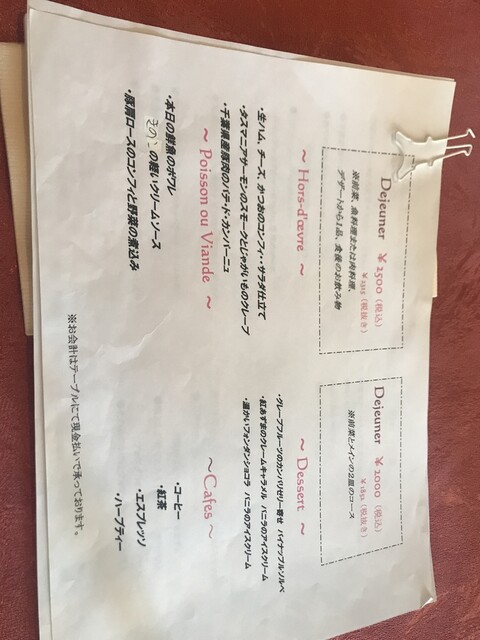 Dejeuner ￥2500（税込）
￥2315（税抜き）
※前菜、魚料理または肉料理、
デザートから1品、食後のお飲み物
～ Hors-d'œvre ～
・生ハム、チーズ、かつおのコンフィ・・サラダ仕立て
・タスマニアサーモンのスモークとじゃがいものクレープ
・千葉県産豚肉のパテ・ド・カンパーニュ
～ Poisson ou Viande ～
・本日の鮮魚のポワレ
きのこの軽いクリームソース
・豚肩ロースのコンフィと野菜の煮込み
Dejeuner ￥2000（税込）
￥1852（税抜き）
※前菜とメインの2皿のコース
～ Dessert ～
・グレープフルーツのカンパリゼリー寄せ パイナップルソルベ
・紅あずまのクレームキャラメル バニラのアイスクリーム
・温かいフォンダンショコラ バニラのアイスクリーム
～Cafes～
・コーヒー
・紅茶
・エスプレッソ
・ハーブティー
※お会計はテーブルにて現金払いで承っております。